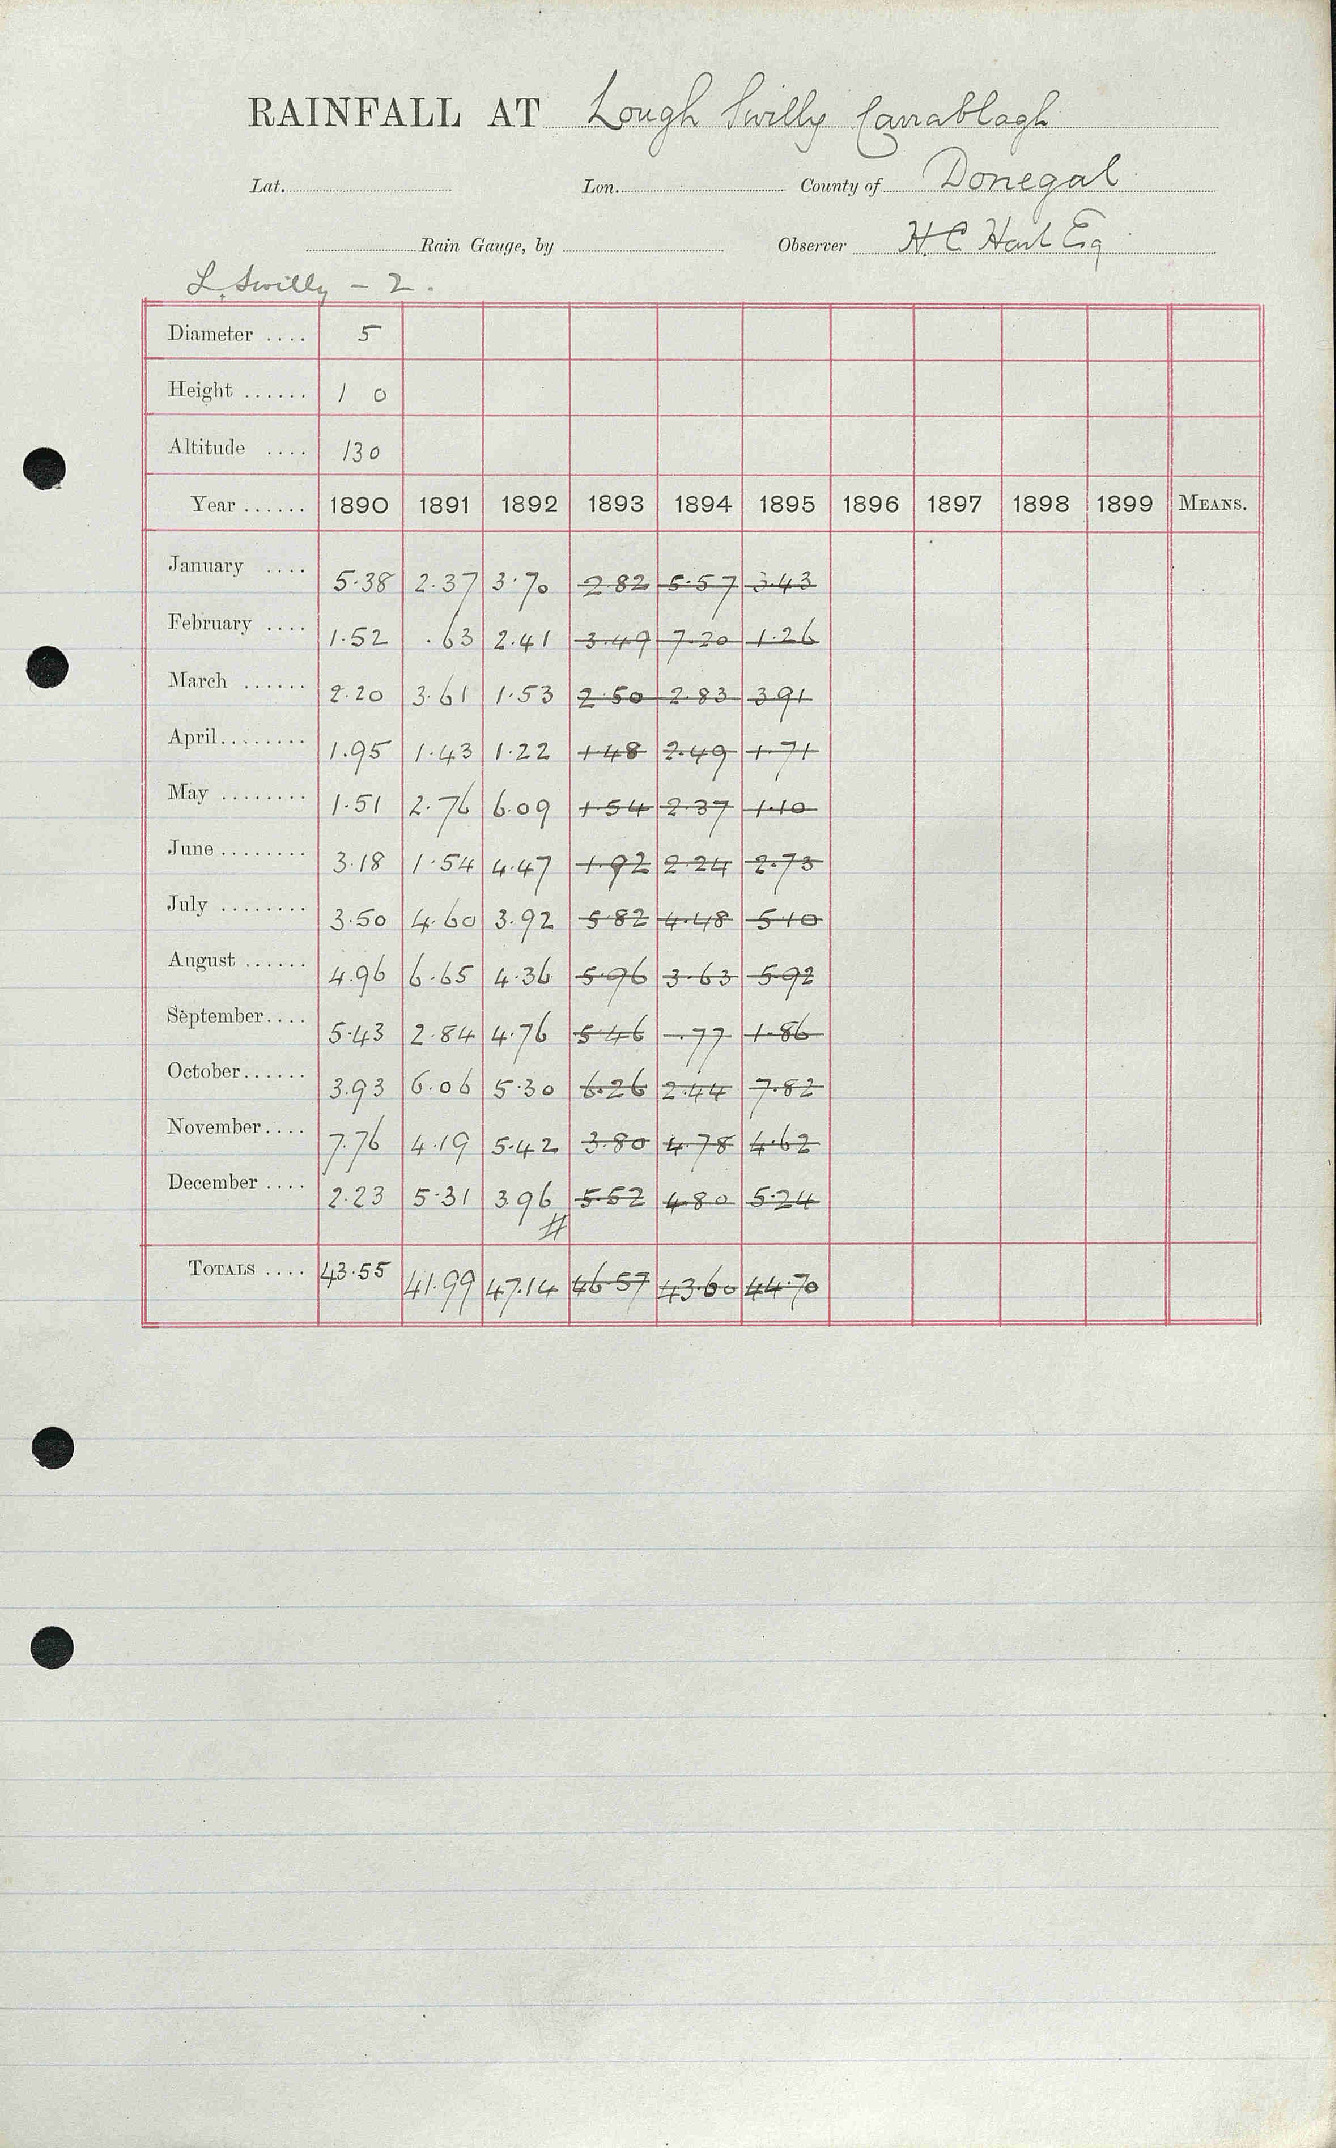 RAINFALL AT Lough Swilly Carrablagh
Lat. Lon. County of Donegal
Rain Gauge, by Observer H. C Hart Esq
L. Swilly - 2.
Diameter .... 5
Height ...... 1 0
Altitude .... 130
Year ...... 1890 1891 1892 1893 1894 1895 1896 1897 1898 1899 MEANS.
January .... 5.38 2.37 3.70 2.82 5.57 3.43
February .... 1.52 .63 2.41 3.49 7.20 1.26
March ...... 2.20 3.61 1.53 2.50 2.83 3.91
April........ 1.95 1.43 1.22 1.48 2.49 1.71
May ........ 1.51 2.76 6.09 1.54 2.37 1.10
June ........ 3.18 1.54 4.47 1.92 2.24 2.73
July ........ 3.50 4.60 3.92 5.82 4.48 5.10
August ...... 4.96 6.65 4.36 5.96 3.63 5.92
September.... 5.43 2.84 4.76 5.46 .77 1.86
October...... 3.93 6.06 5.30 6.26 2.44 7.82
November.... 7.76 4.19 5.42 3.80 4.78 4.62
December .... 2.23 5.31 3.96 5.52 4.80 5.24
#
TOTALS .... 43.55 41.99 47.14 46.57 43.60 44.70